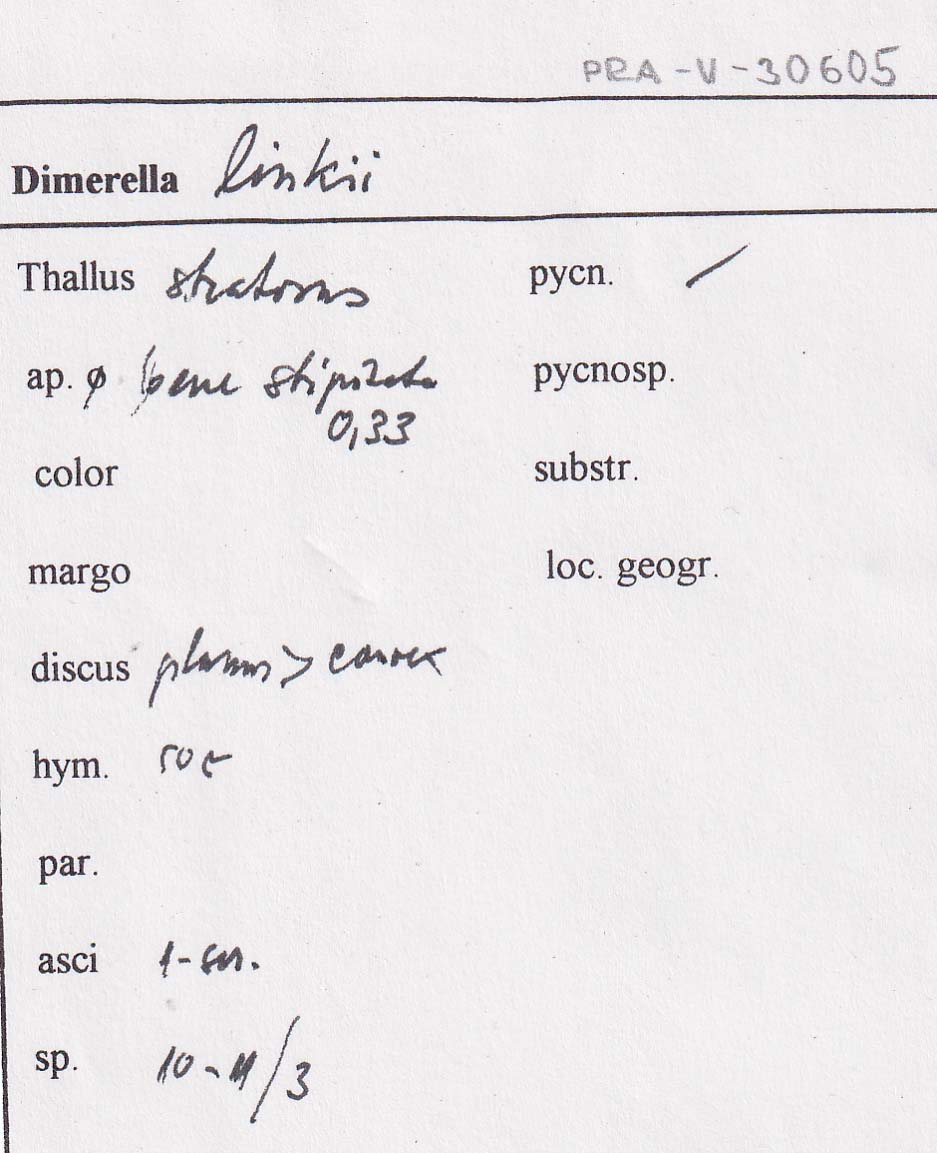 PRA-V-30605
Dimerella linkii
Thallus
pycn. /
ap. ø bene stipitata
0,33
pycnosp.
color
substr.
margo
loc. geogr.
discus planus > convex
hym.
par.
asci 1-ser.
sp. 10-11/3